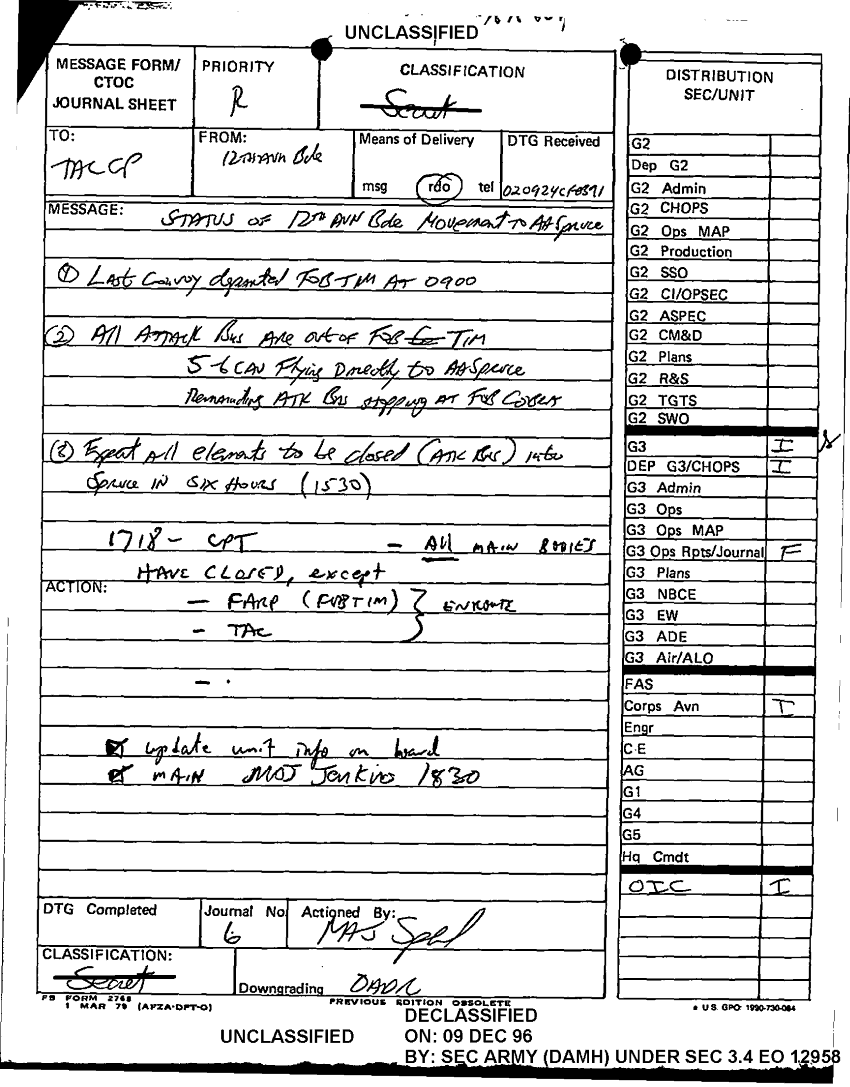 UNCLASSIFIED
MESSAGE FORM/
CTOC
JOURNAL SHEET
PRIORITY
R
CLASSIFICATION
Secret
TO:
TAC CP
FROM:
12TH AVN Bde
Means of Delivery
msg rdo tel
DTG Received
MESSAGE:
STATUS OF 12TH AVN Bde Movement to AA Spruce
(1) Last Convoy departed FOB TIM AT 0900
(2) All ATTACK Bns Are out of FOB TIM
5-6 CAV Flying Directly to AA Spruce
Remainding ATK Bns stopping AT FOB COBRA
(3) Expect All elements to be closed (ATK Bns) into
Spruce IN SIX HOURS (1530)
1718 - CPT - All MAIN BODIES
HAVE CLOSED, except
ACTION:
- FARP (FOB TIM) } ENROUTE
- TAC
- .
update unit info on board
MAIN MAJ Jenkins 1830
DTG Completed
Journal No
6
Actioned By:
MAJ
CLASSIFICATION:
Secret
Downgrading OADR
FB FORM 2768
1 MAR 79 (AFZA-DPT-O)
PREVIOUS EDITION OBSOLETE
DISTRIBUTION
SEC/UNIT
G2
Dep G2
G2 Admin
G2 CHOPS
G2 Ops MAP
G2 Production
G2 SSO
G2 CI/OPSEC
G2 ASPEC
G2 CM&D
G2 Plans
G2 R&S
G2 TGTS
G2 SWO
G3 I
DEP G3/CHOPS I
G3 Admin
G3 Ops
G3 Ops MAP
G3 Ops Rpts/Journal F
G3 Plans
G3 NBCE
G3 EW
G3 ADE
G3 Air/ALO
FAS
Corps Avn I
Engr
C-E
AG
G1
G4
G5
Hq Cmdt
OIC I
* U.S. GPO: 1990-730-084
UNCLASSIFIED
DECLASSIFIED
ON: 09 DEC 96
BY: SEC ARMY (DAMH) UNDER SEC 3.4 EO 12958